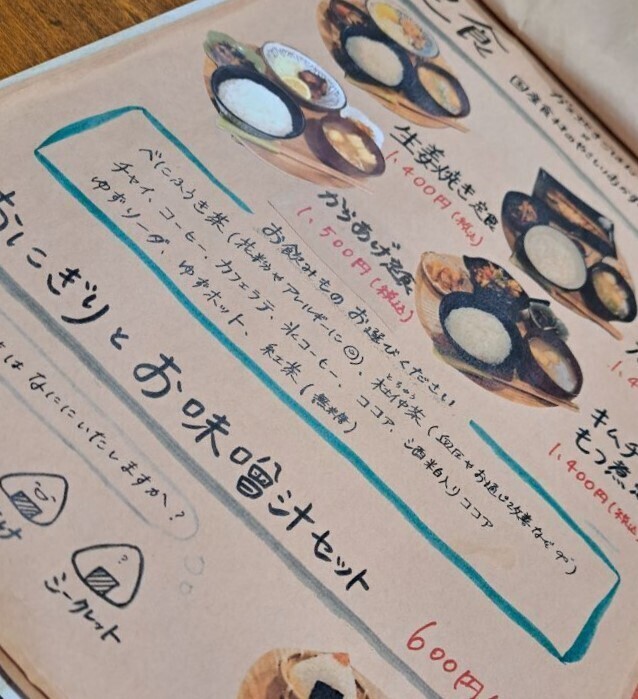 定食
国産食材の
生姜焼き定食
1,400円(税込)
からあげ定食
1,500円(税込)
キムチ
もつ煮
1,400円(税込)
お飲みもの お選びください
べにふうき茶(花粉やアレルギーに◎)、杜仲茶(血圧やお通じ改善などが)
とちゅう
チャイ、コーヒー、カフェラテ、氷コーヒー、ココア、酒粕入りココア
ゆずソーダ、ゆずホット、紅茶(無糖)
おにぎりとお味噌汁セット
はなににいたしますか?
シークレット
600円